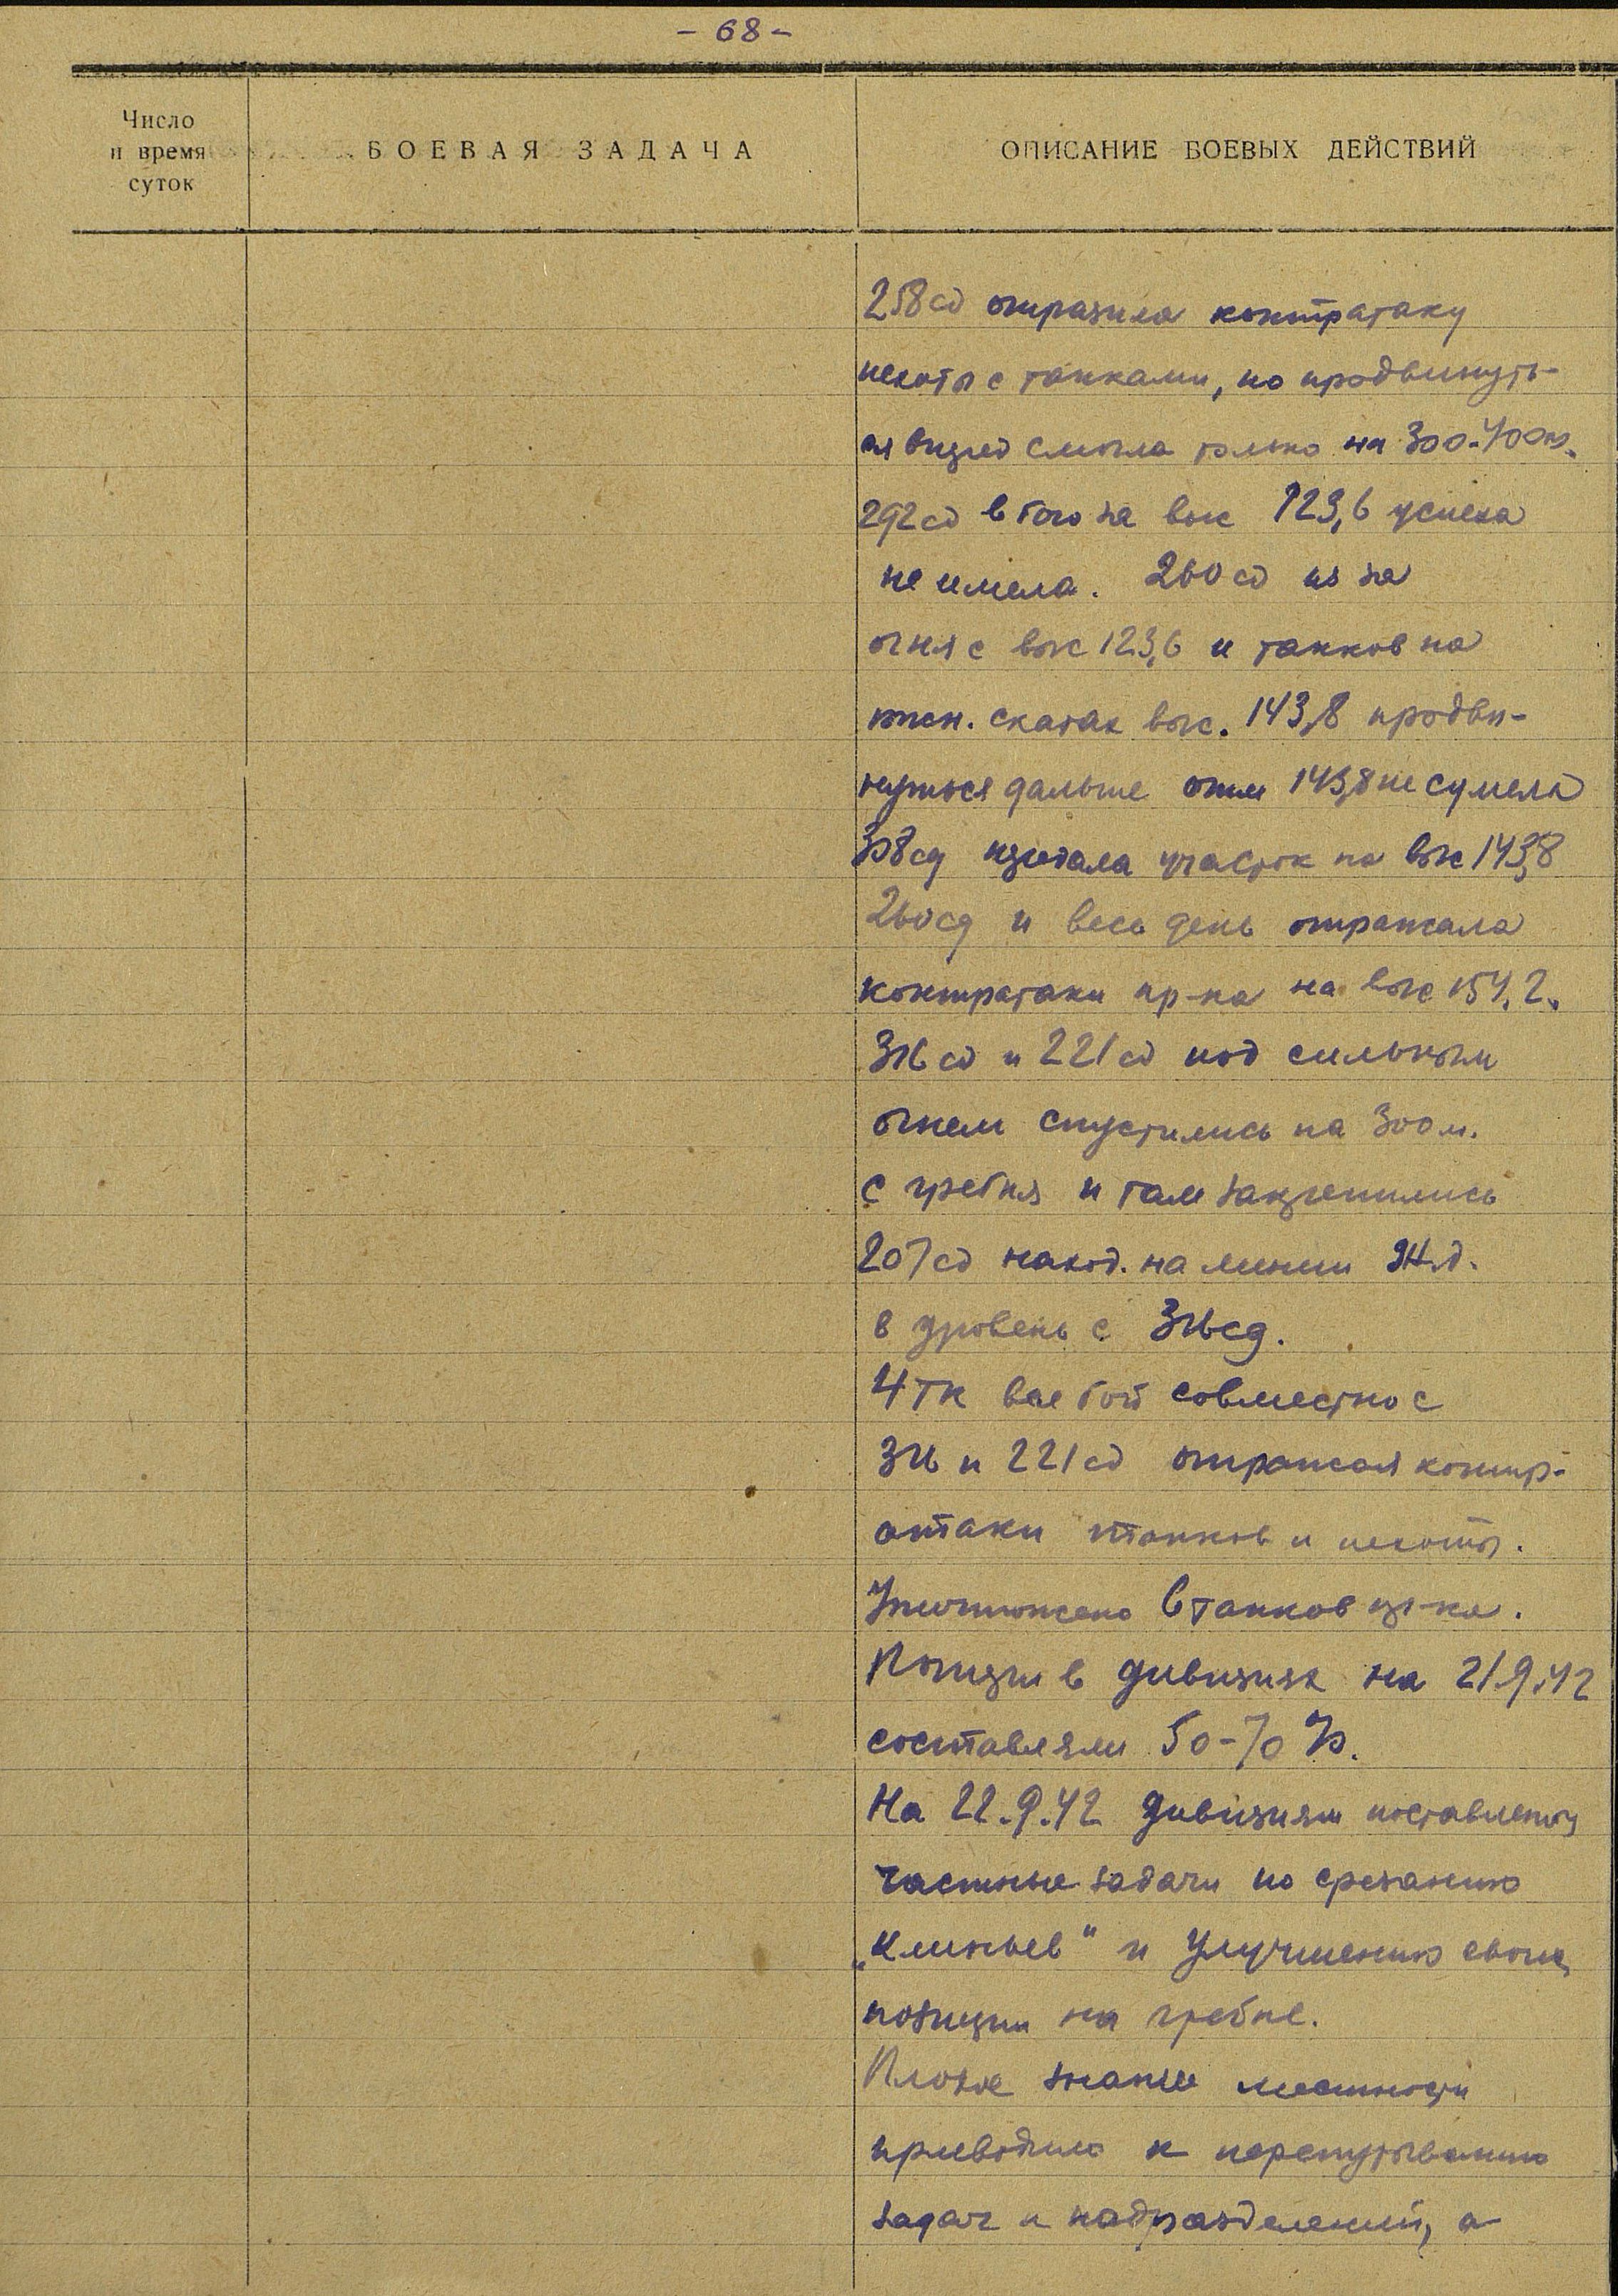 - 68 -
Число
и время
суток
БОЕВАЯ ЗАДАЧА
ОПИСАНИЕ БОЕВЫХ ДЕЙСТВИЙ
258 сд отразила контратаку
пехоты с танками, но продвинуть-
ся вперед смогла только на 300-400 м.
292 сд в бою за выс 123,6 успеха
не имела. 260 сд из за
огня с выс 123,6 и танков на
южн. скатах выс. 143,8 продви-
нуться дальше отм 143,8 не сумела
308 сд передала участок на выс 143,8
260 сд и весь день отражала
контратаки пр-ка на выс 154,2.
316 сд и 221 сд под сильным
огнем спустились на 300 м.
с гребня и там закрепились
207 сд наход. на линии
в уровень с 316 сд.
4 ТК вел бой совместно с
316 и 221 сд отражая контр-
атаки танков и пехоты.
Уничтожено 6 танков пр-ка.
Потери в дивизиях на 21.9.42
составляли 50-70 %.
На 22.9.42 дивизиям поставлены
частные задачи по срезанию
„клиньев" и улучшению своих
позиции на гребне.
Плохое знание местности
приводило к перепутыванию
задач и подразделений, а